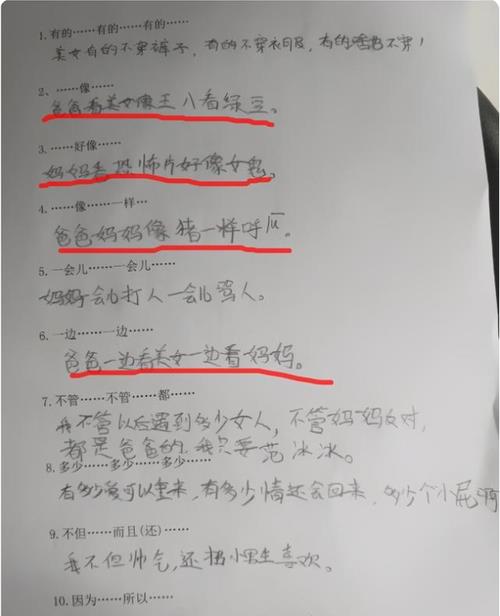 1.有的……有的……有的……
美女有的不穿裤子，有的不穿衣服，有的啥都不穿！
2、……像……
爸爸看美女像王八看绿豆。
3.……好像……
妈妈看恐怖片好像女鬼。
4.……像……一样…
爸爸妈妈像猪一样呼瓜。
5.一会儿……一会儿……
妈妈会儿打人一会儿骂人。
6.一边……一边……
爸爸一边看美女一边看妈妈。
7.不管……不管……都……
我不管以后遇到多少女人，不管妈妈反对，
都是爸爸的，我只要范冰冰。
8.多少……多少……多少……
有多少爱可以重来，有多少情还会回来，多少个小屁
9.不但……而且(还)……
我不但帅气，还招小男生喜欢。
10.因为……所以……